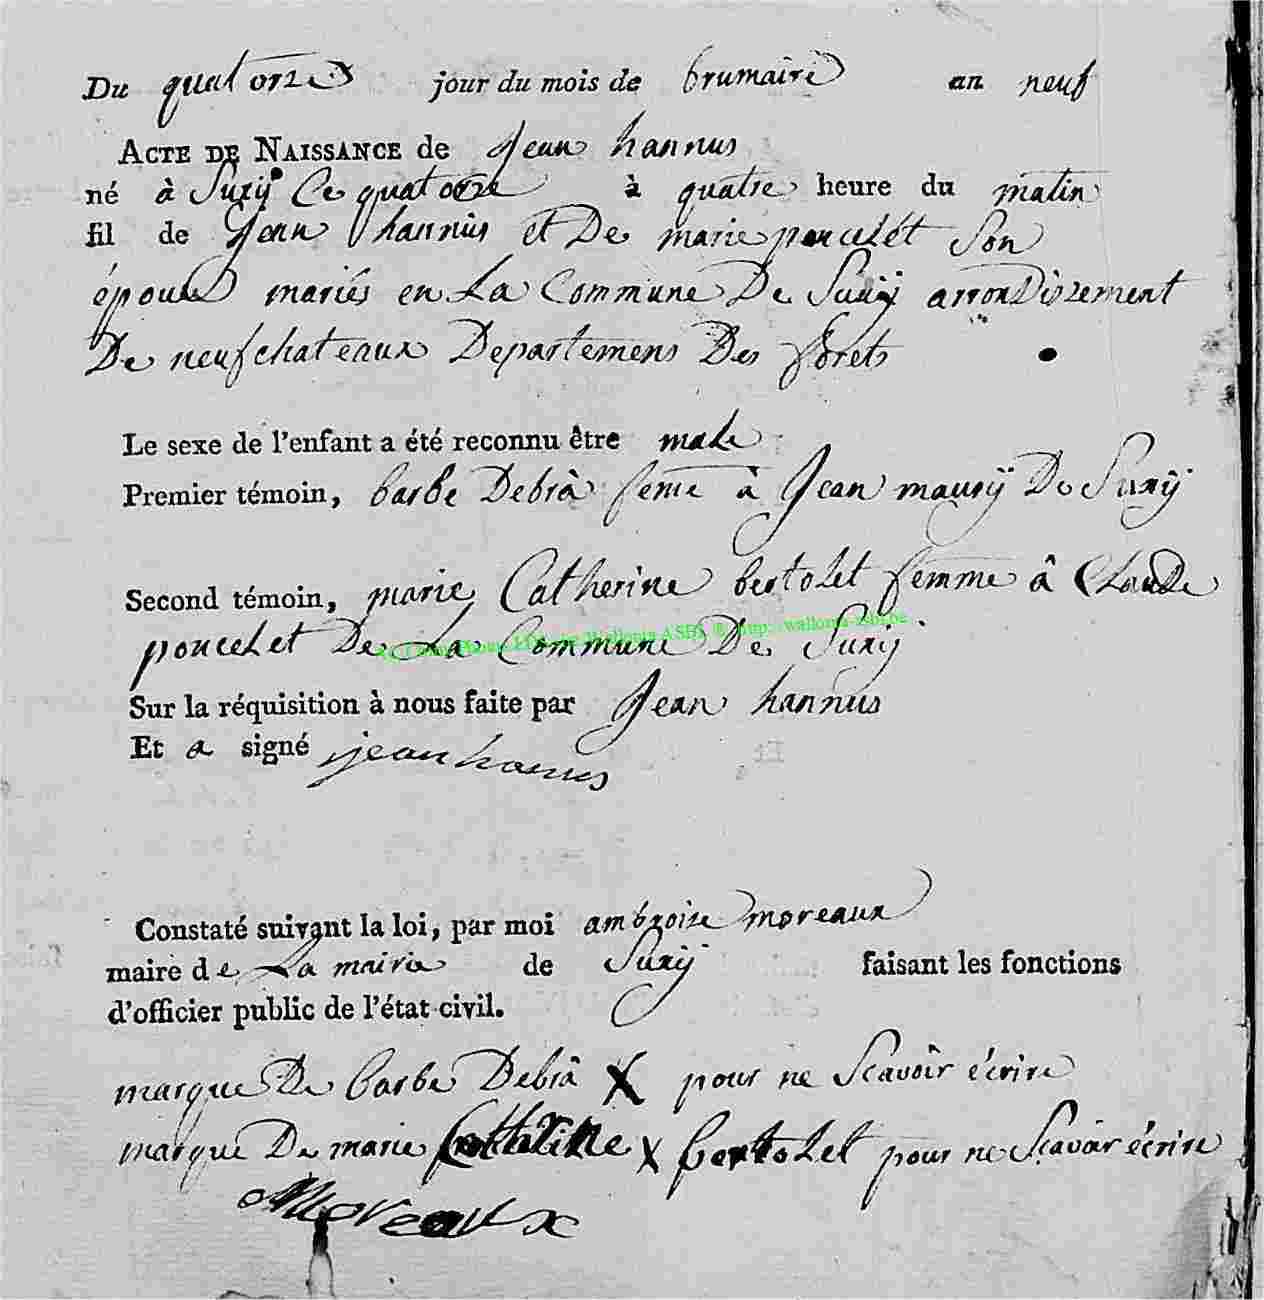 Du quatorze jour du mois de brumaire an neuf
ACTE DE NAISSANCE de Jean hannus
né à Suxÿ Ce quatorze à quatre heure du matin
fil de Jean hannus et De marie poncelet Son
épouse mariés en La Commune De Suxÿ arrondissement
De neufchateaux Departemens Des forets
Le sexe de l'enfant a été reconnu être male
Premier témoin, barbe Debrâ feme à Jean maurÿ De Suxÿ
Second témoin, marie Catherine bertolet femme â Claude
poncelet De La Commune De Suxÿ
Sur la réquisition à nous faite par Jean hannus
Et a signé jean hannus
Constaté suivant la loi, par moi ambroise moreaux
maire de La mairie de Suxÿ faisant les fonctions
d'officier public de l'état civil.
marque De barbe Debrâ X pour ne Scavoir écrire
marque De marie Catherine X bertolet pour ne Scavoir écrire
Moreaux